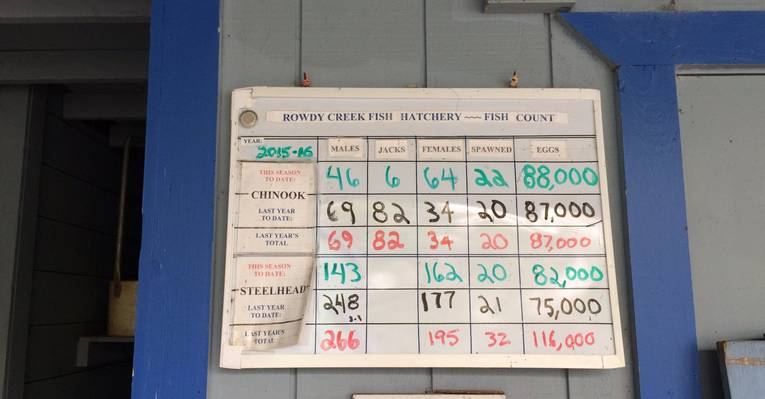 ROWDY CREEK FISH HATCHERY ~~~ FISH COUNT
YEAR: 2015-16 MALES JACKS FEMALES SPAWNED EGGS
THIS SEASON TO DATE: 46 6 64 22 88,000
CHINOOK
LAST YEAR TO DATE: 69 82 34 20 87,000
LAST YEAR'S TOTAL 69 82 34 20 87,000
THIS SEASON TO DATE: 143 162 20 82,000
STEELHEAD
LAST YEAR TO DATE: 248 177 21 75,000
LAST YEAR'S TOTAL 266 195 32 116,000